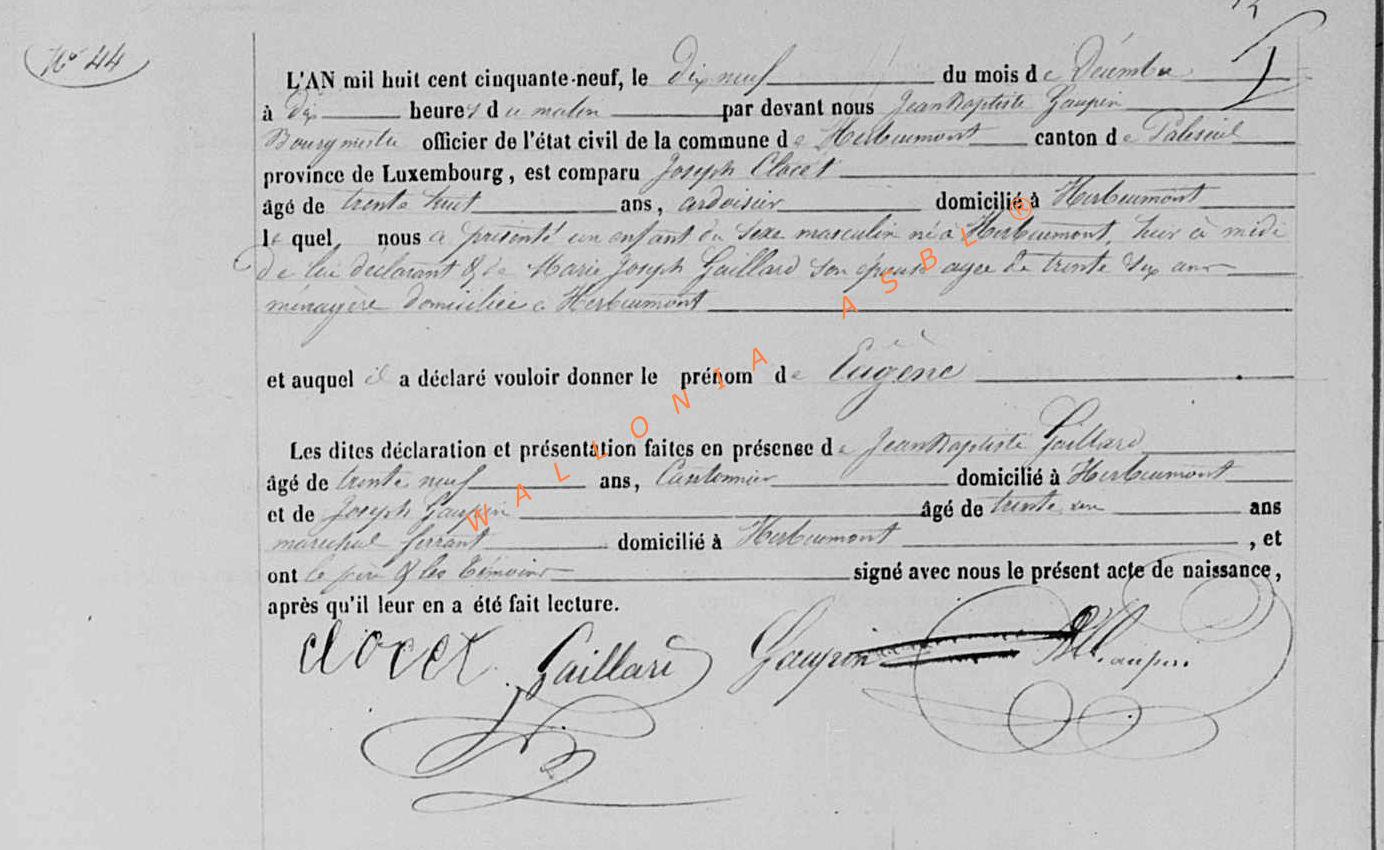 No 44
L'AN mil huit cent cinquante-neuf, le dix neuf du mois de Décembre
à dix heures du matin par devant nous Jean Baptiste Gaupin
Bourgmestre officier de l'état civil de la commune de Herbeumont canton de Paliseul
province de Luxembourg, est comparu Joseph Clocet
âgé de trente huit ans, ardoisier domicilié à Herbeumont
lequel, nous a présenté un enfant du sexe masculin né à Herbeumont, hier à midi
de lui déclarant & de Marie Joseph Gaillard son épouse agée de trente six ans
ménagère domiciliée à Herbeumont
et auquel il a déclaré vouloir donner le prénom de Eugène
Les dites déclaration et présentation faites en présence de Jean Baptiste Gaillard
âgé de trente neuf ans, Cantonnier domicilié à Herbeumont
et de Joseph Gaupin âgé de trente ans
marechal ferrant domicilié à Herbeumont, et
ont le père & les témoins signé avec nous le présent acte de naissance,
après qu'il leur en a été fait lecture.
clocet Gaillard Gaupin
WALLONIA ASBL ®